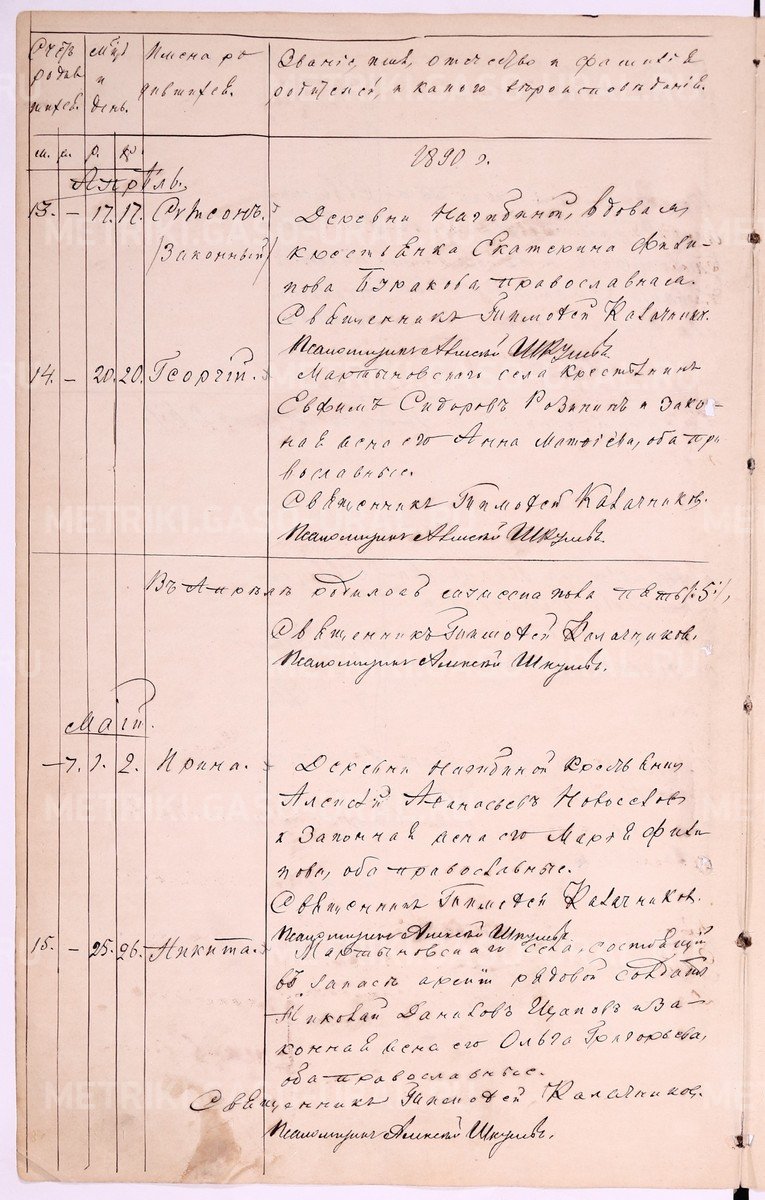 Счетъ родив шихся.
мѣсяцъ и день.
Имена ро дившихся.
Званіе, имя, отчество и фамилія
родителей, и какого вѣроисповѣданія.
м. ж. р. к.
1890 г.
Апрѣль.
13. – 17. 17. Симеонъ.
(Законный)
Деревни Нагибиной, вдовая
крестьянка Екатерина Фили-
пова Буракова, православная.
Священникъ Тимоѳей Калачниковъ.
Псаломщикъ Алексѣй Шкулевъ.
14. – 20. 20. Георгій.
Мартыновскаго села крестьянинъ
Евфимъ Сидоровъ и зако-
ная жена его Анна Матѳіева, оба пра
вославные.
Священникъ Тимоѳей Калачниковъ.
Псаломщикъ Алексѣй Шкулевъ.
Въ Апрѣлѣ родилось пола пять /:5:/,
Священникъ Тимоѳей Калачниковъ.
Псаломщикъ Алексѣй Шкулевъ.
Маій.
– 7. 1. 2. Ирина.
Деревни Нагибиной крестьянинъ
Алексѣй Аѳанасьевъ Новоселовъ
и законная жена его Марія Фили
пова, оба православные.
Священникъ Тимоѳей Калачниковъ.
Псаломщикъ Алексѣй Шкулевъ.
15. – 25. 26. Никита.
Мартыновскаго села, состоящій
въ запасѣ арміи рядовой солдатъ
Николай Даниловъ Щаповъ и за-
конная жена его Ольга Григорьева,
оба православные.
Священникъ Тимоѳей Калачниковъ.
Псаломщикъ Алексѣй Шкулевъ.